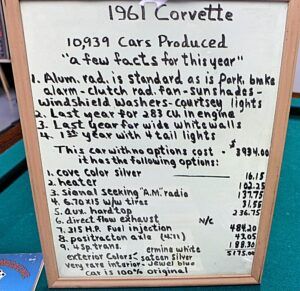 1961 Corvette
10,939 Cars Produced
"a few facts for this year"
1. Alum. rad. is standard as is Park. brake
alarm - clutch rad. fan - sunshades -
windshield washers - courtsey lights
2. Last year for 283 CU. in engine
3. Last year for wide white walls
4. 1st year with 4 tail lights
This car with no options cost - $3934.00
it has the following options:
1. cove color silver 16.15
2. heater 102.25
3. signal seeking "A.M." radio 137.75
4. 6.70x15 w/w tires 31.55
5. aux. hardtop 236.75
6. direct flow exhaust N/C
7. 315 H.P. Fuel injection 484.20
8. positraction axle (4:11) 43.05
9. 4 sp. trans. 188.30
ermine white 5175.00
exterior colors - sateen silver
very rare interior - Jewel blue
car is 100% original